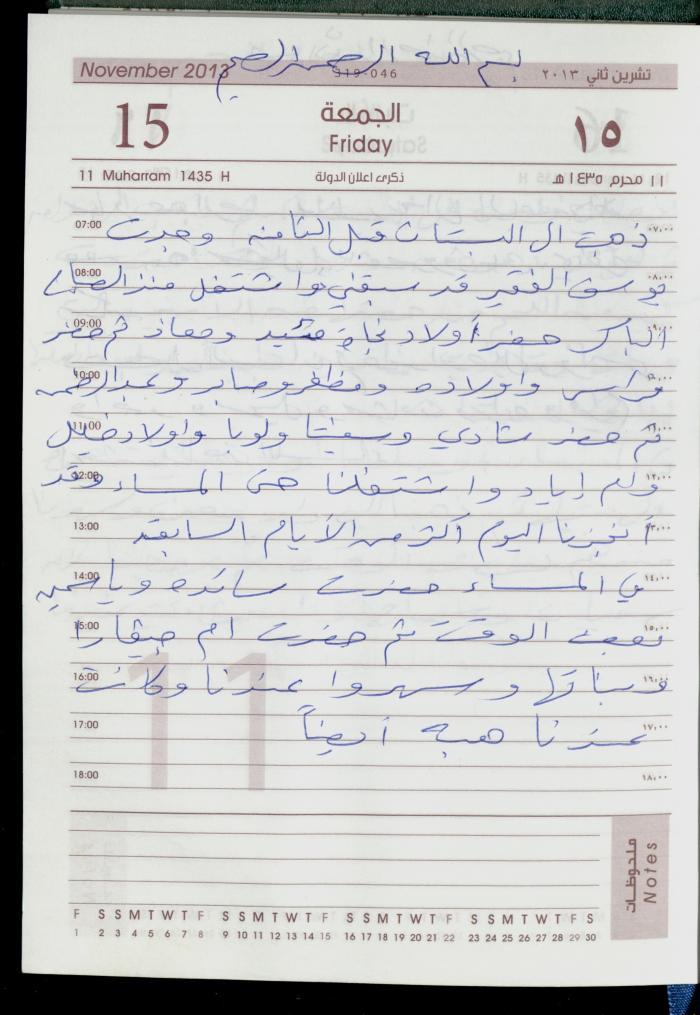 بسم الله الرحمن الرحيم
November 2013 319-046 تشرين ثاني ٢٠١٣
15 الجمعة ١٥
Friday
11 Muharram 1435 H ذكرى اعلان الدولة ١١ محرم ١٤٣٥ هـ
07:00 ذهبت الى البستان قبل الثامنه وجدت ٠٧،٠٠
08:00 يوسف الفقير قد سبقني واشتغل منذ الصباح ٠٨،٠٠
09:00 الباكر حضر أولاد نجاة ومعاذ ثم حضر ٠٩،٠٠
10:00 فراس واولاده ومظافر وصابر وعبد الرحمن ١٠،٠٠
11:00 ثم حضر شادي ولوبا واولاد خليل ١١،٠٠
12:00 وام إياد واشتغلنا حتى المساء وقد ١٢،٠٠
13:00 أنجزنا اليوم أكثر من الأيام السابقه ١٣،٠٠
14:00 في المساء حضرت سائده وياسمين ١٤،٠٠
15:00 بعض الوقت ثم حضرت ام ١٥،٠٠
16:00 وبناتها وسهروا عندنا وكانت ١٦،٠٠
17:00 عندنا هبه أيضاً ١٧،٠٠
18:00 ١٨،٠٠
11
ملحوظات
Notes
F S S M T W T F S S M T W T F S S M T W T F S S M T W T F S
1 2 3 4 5 6 7 8 9 10 11 12 13 14 15 16 17 18 19 20 21 22 23 24 25 26 27 28 29 30